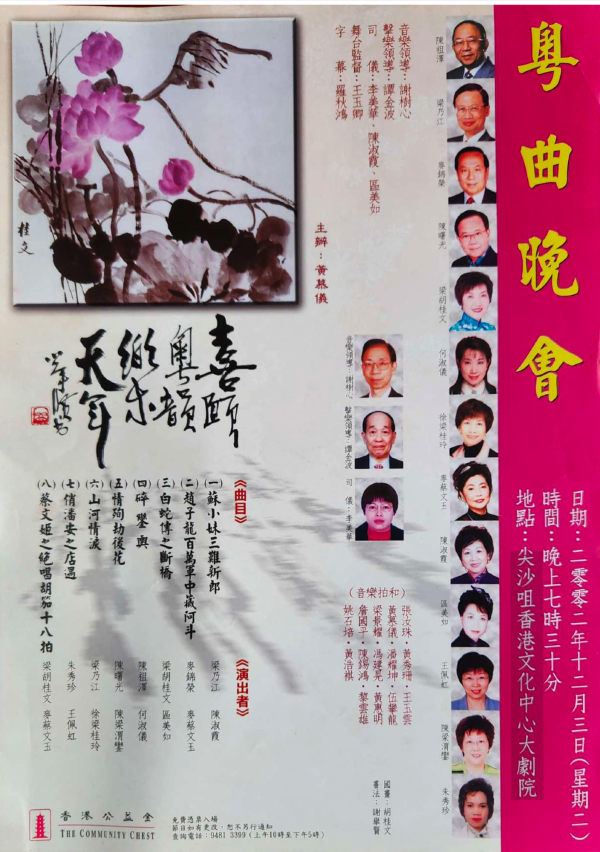 粵曲晚會
日期：二零零二年十二月三日(星期二)
時間：晚上七時三十分
地點：尖沙咀香港文化中心大劇院
陳祖澤
梁乃江
麥錦榮
陳曙光
梁胡桂文
何淑儀
徐梁桂玲
麥蔡文玉
陳淑霞
區美如
王佩虹
陳梁渭鑾
朱秀珍
音樂領導：謝樹心
擊樂領導：譚金波
司儀：李美華、陳淑霞、區美如
舞台監督：王玉卿
字幕：羅秋鴻
主辦：黃慕儀
音樂領導：謝樹心
擊樂領導：譚金波
司儀：李美華
(音樂拍和)
張汝珠·黃秀珊·王玉雲
黃慕儀·潘耀坤·伍攀龍
梁景耀·馮建晃·黃東明
詹國平·陳錫鴻·黎雲雄
姚石培·黃浩祺
國畫：胡桂文
書法：謝學賢
桂文
喜頤
粵韻
樂
天年
《曲目》
《演出者》
(一)蘇小妹三難新郎 梁乃江 陳淑霞
(二)趙子龍百萬軍中藏阿斗 麥錦榮 麥蔡文玉
(三)白蛇傳之斷橋 梁胡桂文 區美如
(四)碎鑾輿 陳祖澤 何淑儀
(五)情殉劫後花 陳曙光 陳梁渭鑾
(六)山河情淚 梁乃江 徐梁桂玲
(七)俏潘安之店遇 朱秀珍 王佩虹
(八)蔡文姬之絕唱胡笳十八拍 梁胡桂文 麥蔡文玉
香港公益金
THE COMMUNITY CHEST
免費憑票入場
節目如有更改，恕不另行通知
查詢電話：9481 3399 (上午10時至下午5時)